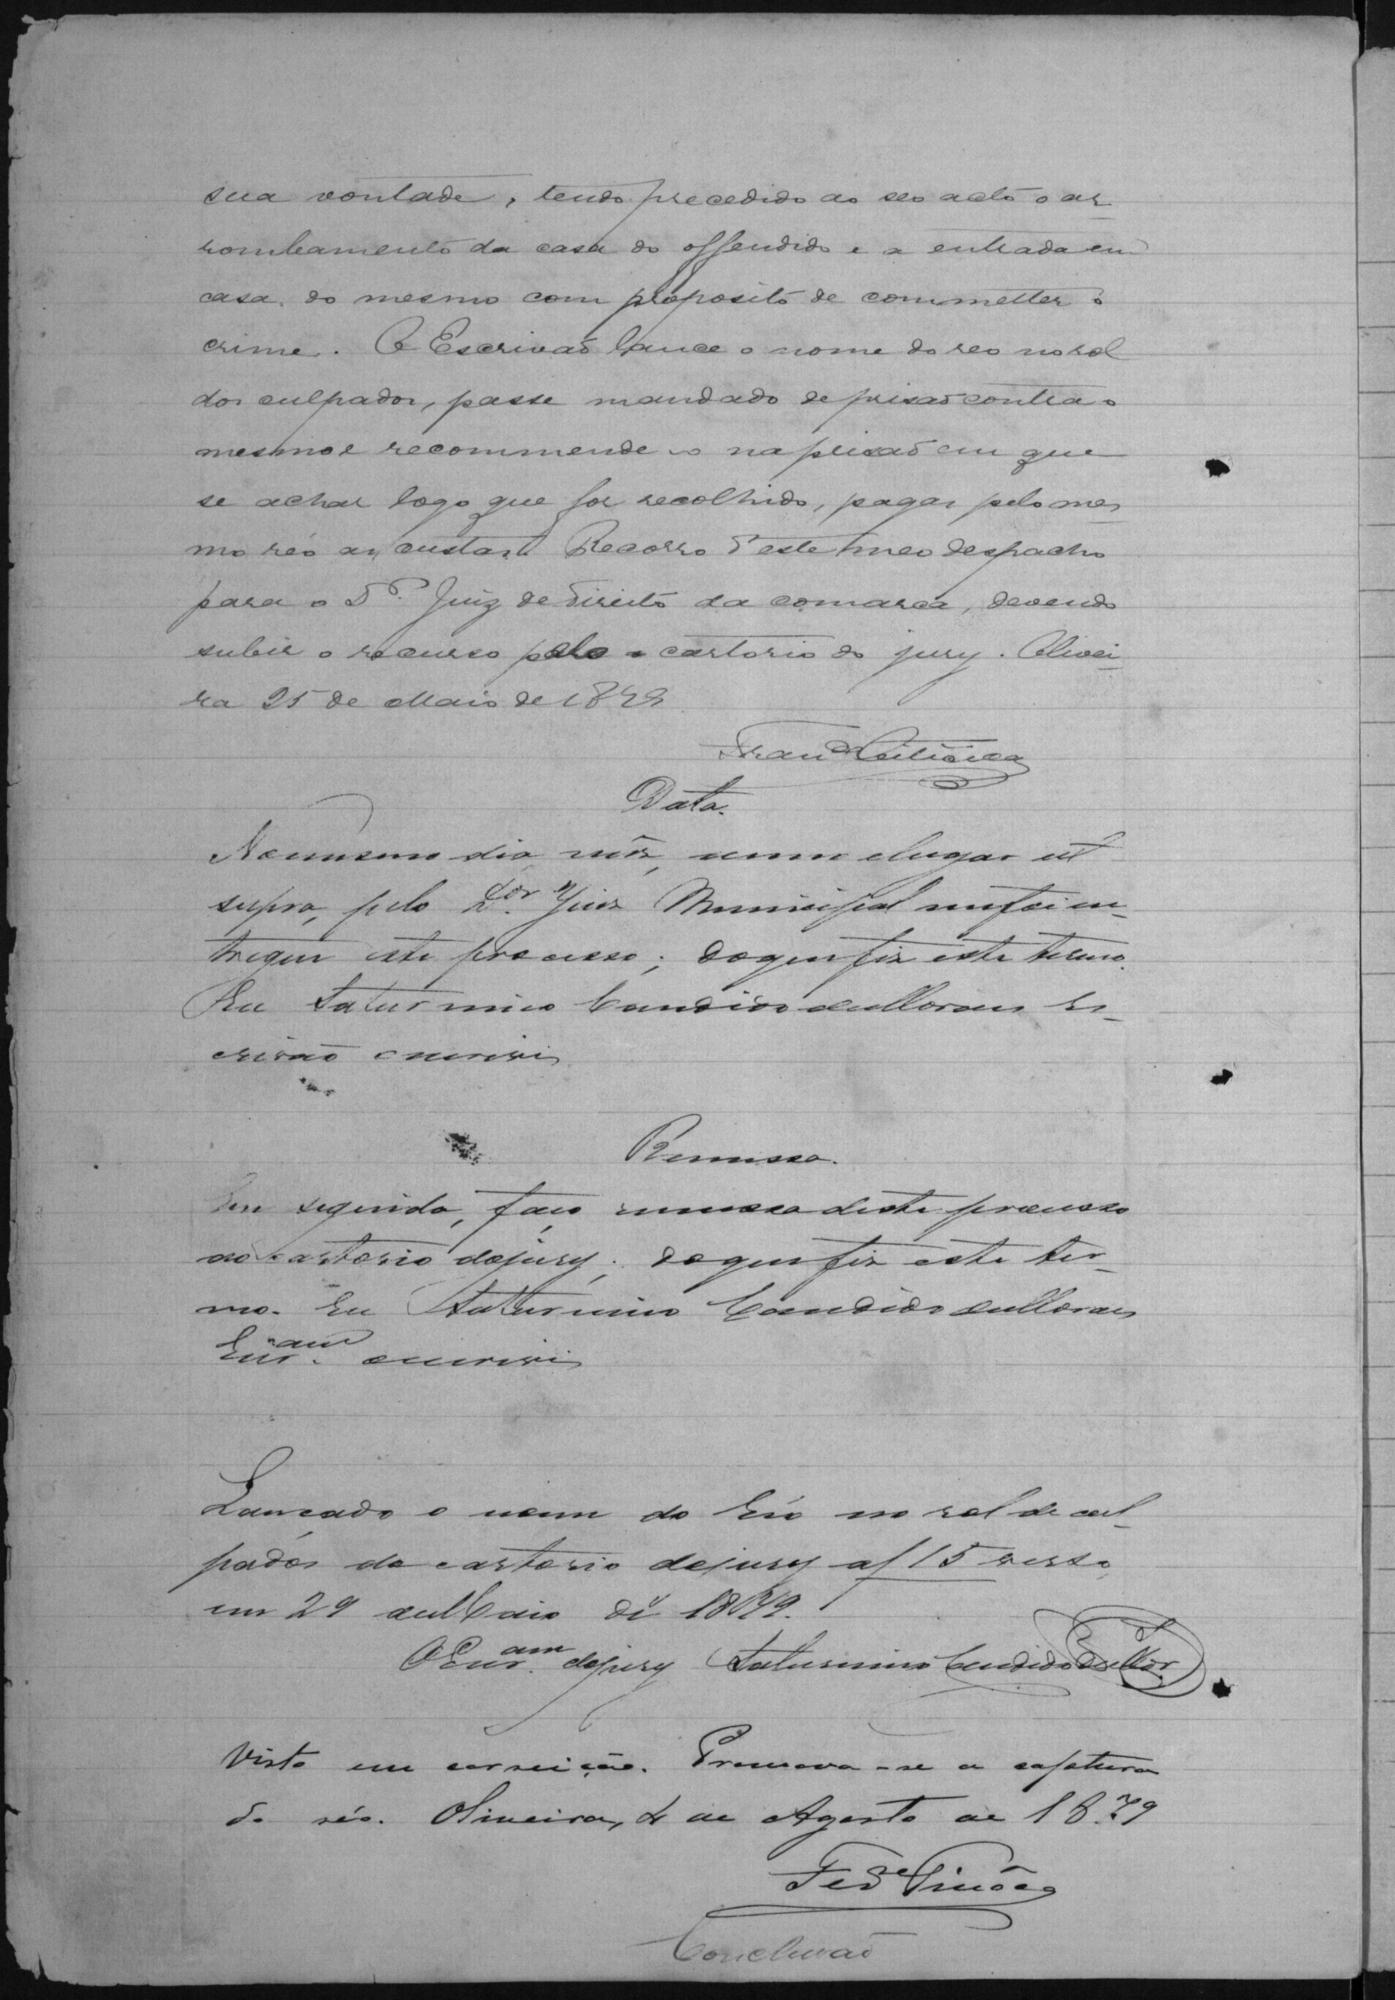 sua vontade, tendo precedido ao seo acto o ar
rombamento da casa do offendido e a entrada em
casa do mesmo com proposito de commetter o
crime. O Escrivaõ lance o nome do reo no rol
dos culpados, passe mandado de prisaõ contra o
mesmo e recommende-o na prisaõ em que
se achar logo que for recolhido, pagas pelo mes
mo réo as custas. Recorro d'este meo despacho
para o Dr. Juiz de Direito da comarca, devendo
subir o recurso pelo cartorio do jury. Olivei-
ra 25 de Maio de 1879
Data.
No mesmo dia, mês, anno e lugar ut
supra, pelo Dor. Juiz Municipal me foi en-
tregue este processo; do que fiz este termo.
Eu Saturnino Candido de Moraes Es-
crivaõ escrevi
Remessa.
Em seguida, faço remessa deste processo
ao cartorio do jury; do que fiz este ter-
mo. Eu Saturnino Candido de Moraes
escrevi
Lançado o nome do Réo no rol de cul-
pados do cartorio do jury af 15 verso,
em 29 de Maio de 1879.
do jury Saturnino Candido de Mor.
Visto em correição. Promova-se a captura
do réo. Oliveira, 4 de Agosto de 1879
Conclusaõ